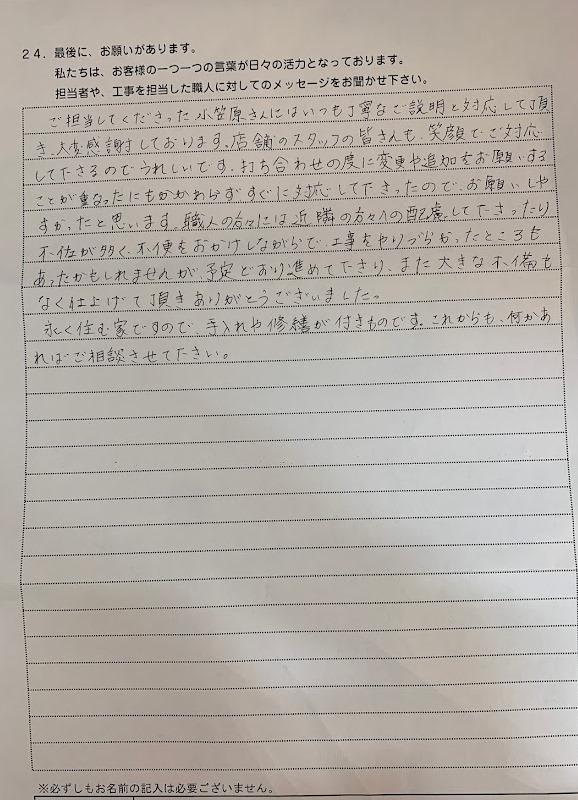 24．最後に、お願いがあります。
私たちは、お客様の一つ一つの言葉が日々の活力となっております。
担当者や、工事を担当した職人に対してのメッセージをお聞かせ下さい。
ご担当してくださった小笠原さんにはいつも丁寧なご説明と対応して頂
き、大変感謝しております。店舗のスタッフの皆さんも、笑顔でご対応
して下さるのでうれしいです。打ち合わせの度に変更や追加をお願いする
ことが重なったにもかかわらずすぐに対応して下さったので、お願いしや
すかったと思います。職人の方々には近隣の方々への配慮して下さったり
不在が多く、不便をおかけしながらで、工事をやりづらかったところも
あったかもしれませんが、予定どおり進めて下さり、また大きな不備も
なく仕上げて頂きありがとうございました。
永く住む家ですので、手入れや修繕が付きものです。これからも、何かあ
ればご相談させて下さい。
※必ずしもお名前の記入は必要ございません。